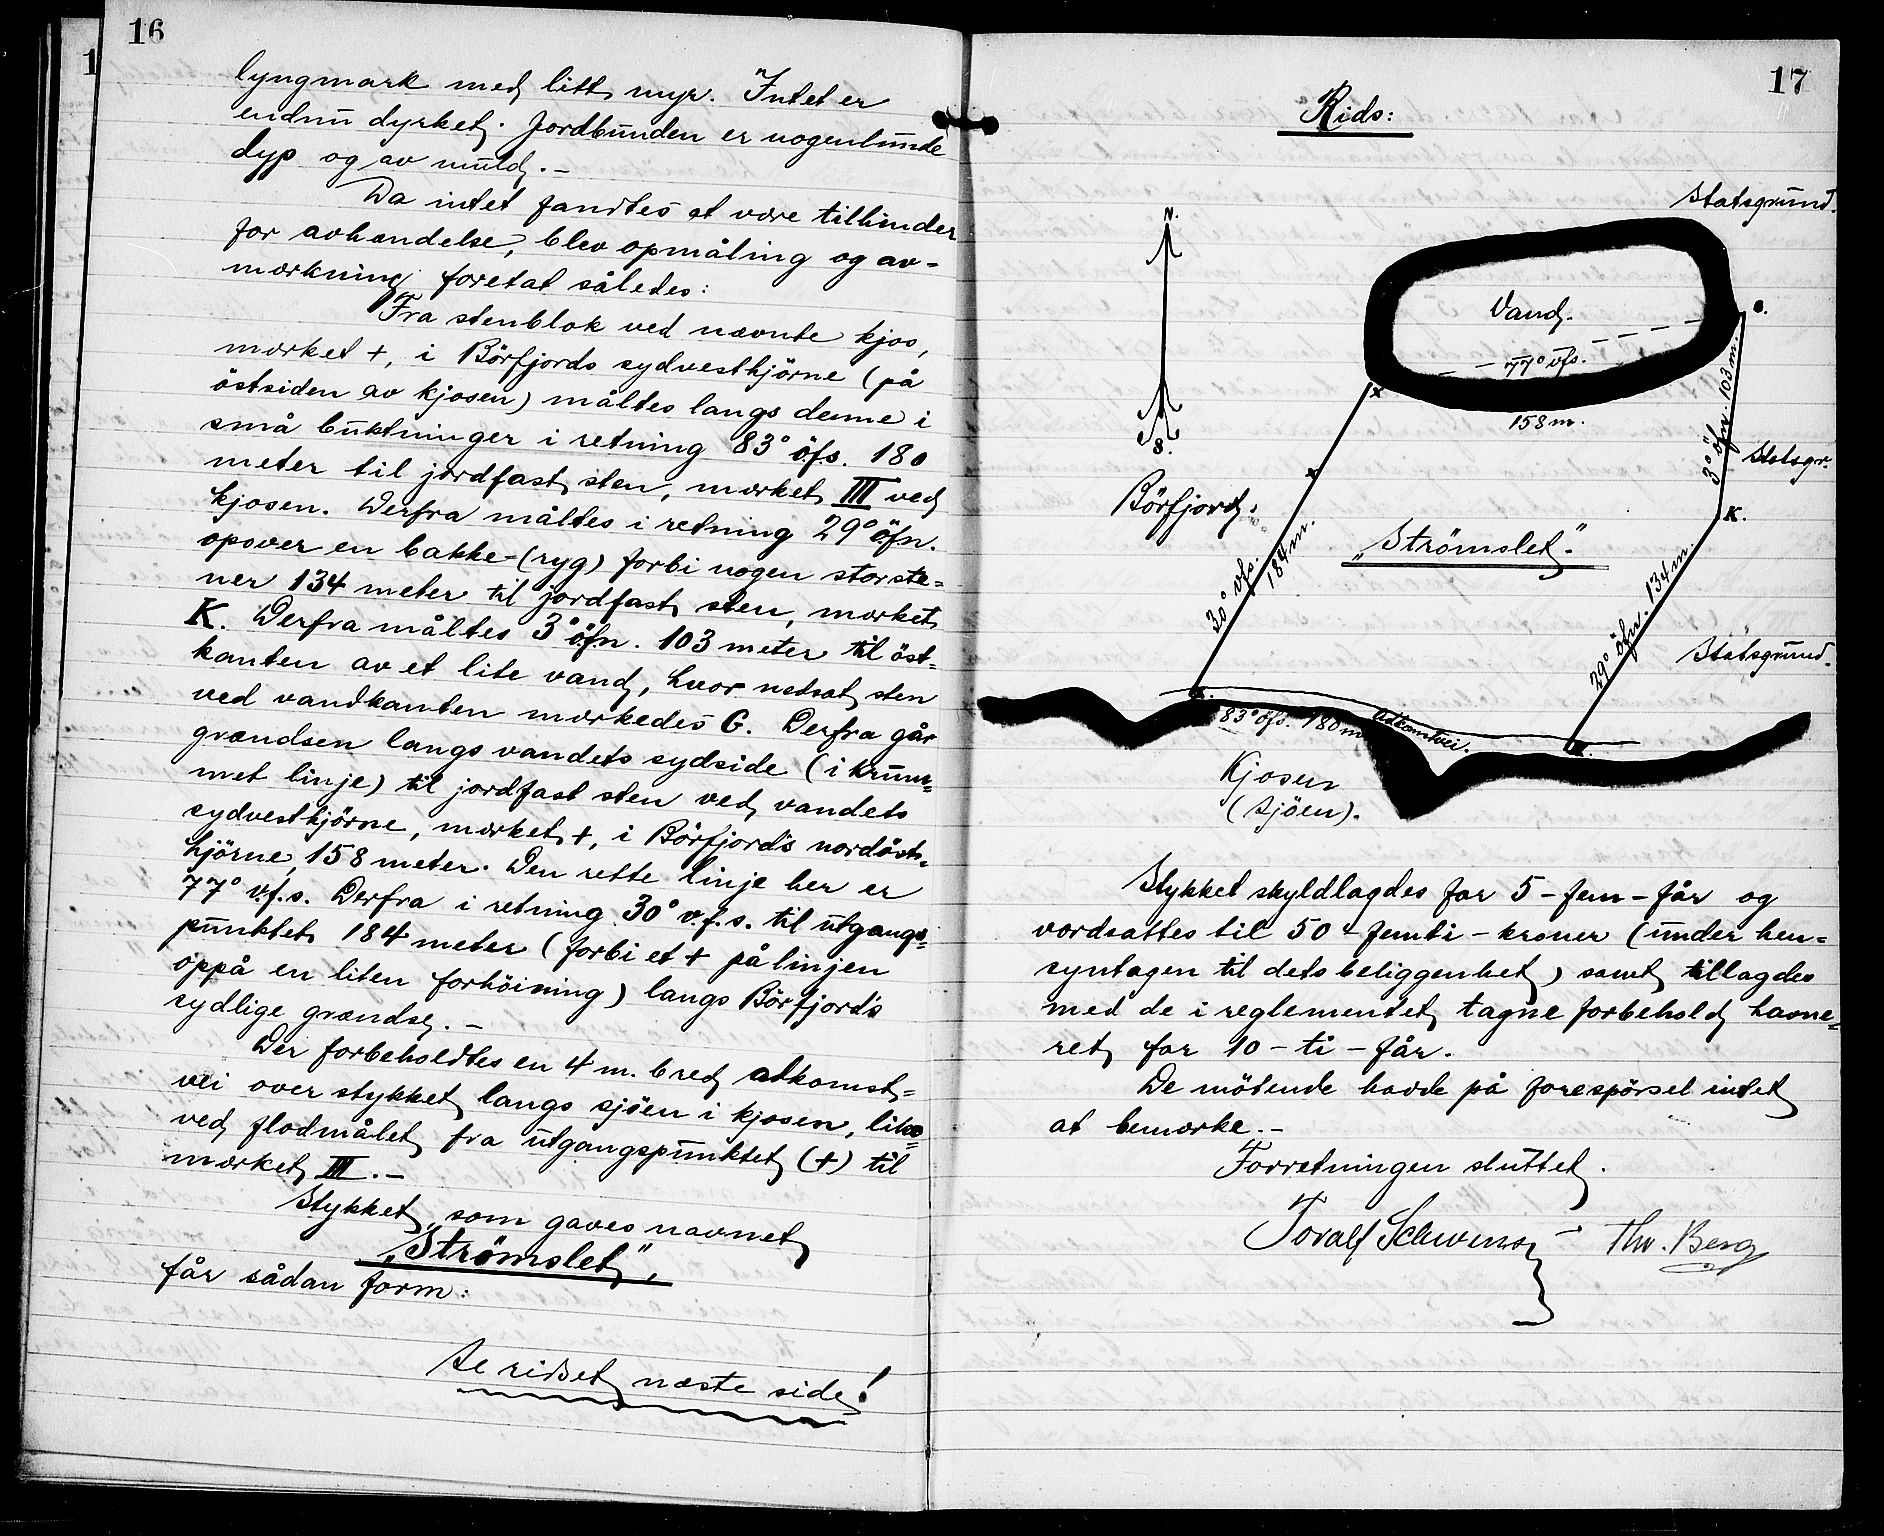 16
lyngmark med litt myr. Intet er
endnu dyrket. Jordbunden er nogenlunde
dyp og av muld. –
Da intet fandtes at være tilhinder
for avhændelse, blev opmåling og av-
mærkning foretat således:
Fra stenblok ved nævnte kjos,
mærket +, i Börfjords sydvesthjörne (på
östsiden av kjosen) måltes langs denne i
små buktninger i retning 83° ö.f.s. 180
meter til jordfast sten, mærket III ved
kjosen. Derfra måltes i retning 29° öfn.
opover en bakke-(ryg) forbi nogen storste=
ner 134 meter til jordfast sten, mærket
K. Derfra måltes 3° ö.f.n. 103 meter til öst=
kanten av et lite vand, hvor nedsat sten
ved vandkanten mærkedes G. Derfra går
grændsen langs vandets sydside (i krum=
met linje) til jordfast sten ved vandets
sydvesthjörne, mærket +, i Börfjords nordöst=
hjörne, 158 meter. Den rette linje her er
77° v.f.s. Derfra i retning 30° v.f.s. til utgangs=
punktet 184 meter (forbi et + på linjen
oppå en liten forhöining) langs Börfjords
sydlige grændse. –
Der forbeholdtes en 4 m. bred atkomst=
vei over stykket langs sjöen i kjosen, like
ved flodmålet fra utgangspunktet (+) til
mærket III. –
Stykket, som gaves navnet
„Strömslet",
får sådan form:
Se ridset næste side!
17
Rids:
Statsgrund.
N.
Vand.
77° vfs.
158 m.
S.
Börfjord.
3° öfn. 103 m.
Statsgr.
K.
„Strömslet".
30° vfs.
184 m.
29° öfn. 134 m.
Statsgrund.
83° öfs. 180 m.
Atkomstvei.
Kjosen
(sjöen).
Stykket skyldlagdes for 5 – fem – får og
værdsattes til 50 – femti – kroner (under hen=
syntagen til dets beliggenhet) samt tillagdes
med de i reglementet tagne forbehold havne=
ret for 10 – ti – får.
De mötende havde på forespörsel intet
at bemærke. –
Forretningen sluttet.
Toralf – Thv. Berg